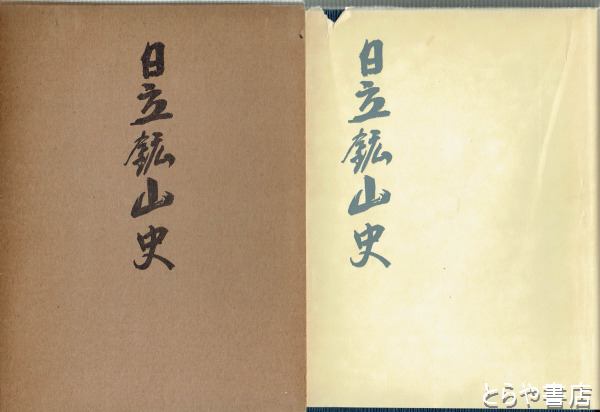 日立鉱山史
日立鉱山史
とらや書店